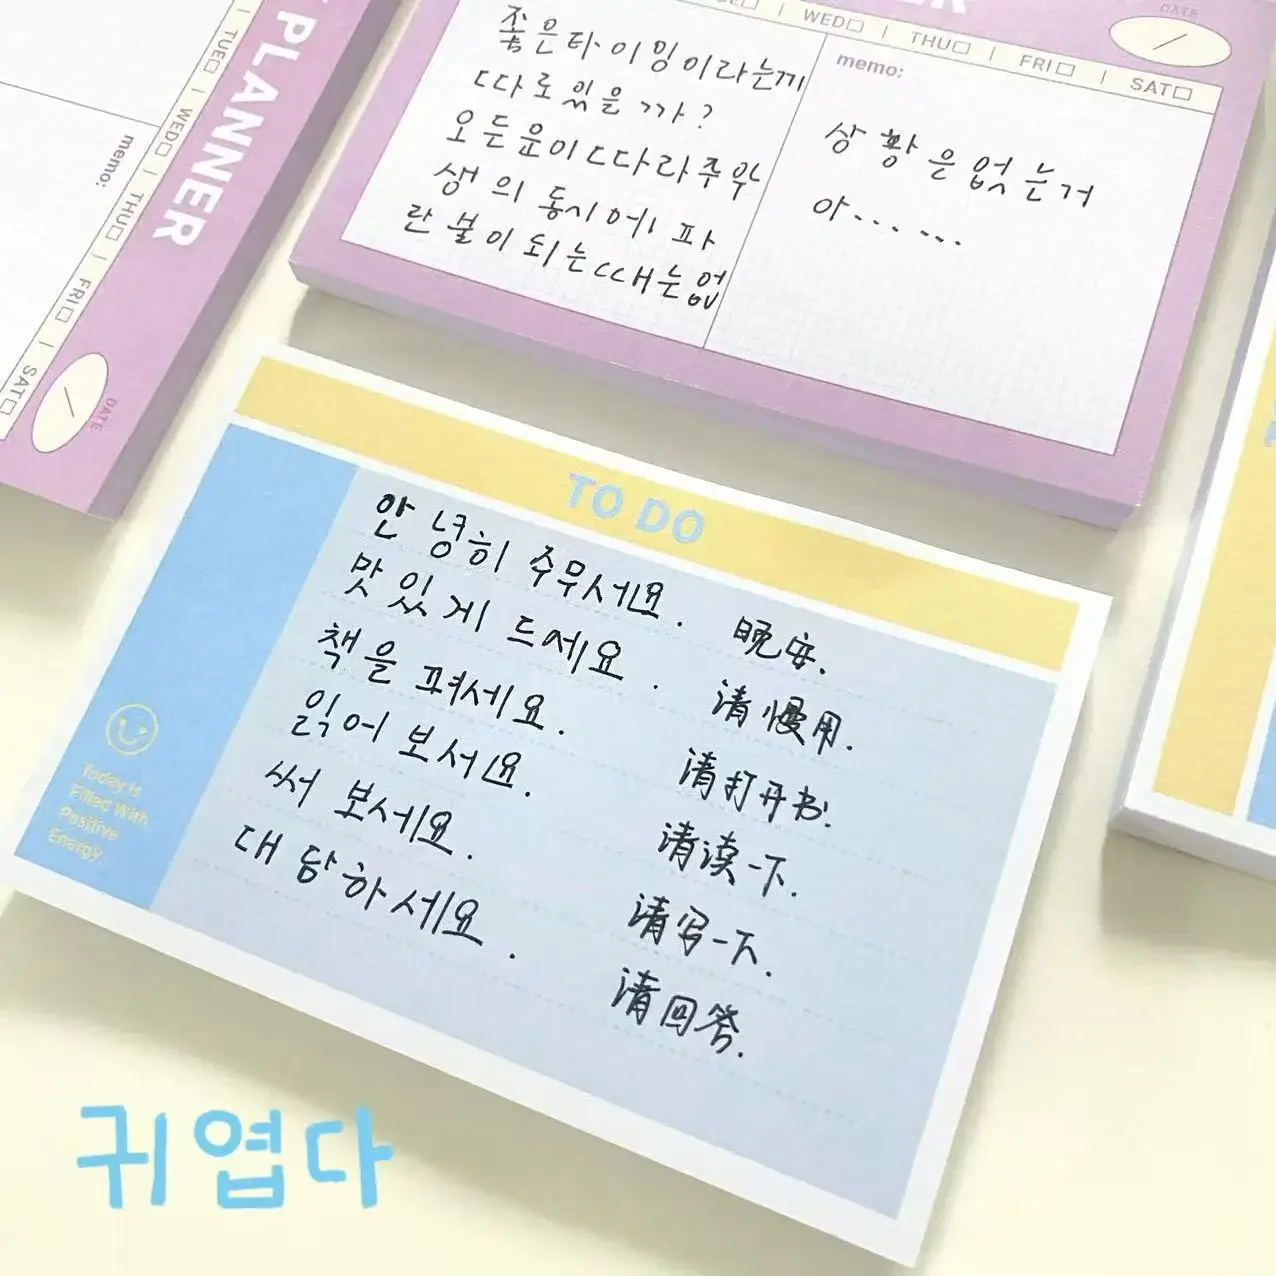 PLANNER
TUE□ | WED□ | THU□ | FRI□ | SAT□
memo:
DATE
WED□ | THU□ | FRI□ | SAT□
DATE
좋은타이밍이라는게
따로있을까?
모든운이따라주와
생의 동시에 파
란불이되는때는없
memo:
상황은없는거
야......
TO DO
안녕히 주무서요. 晚安.
맛있게 드세요. 请慢用.
책을 펴세요. 请打开书.
읽어 보서요. 请读一下.
써 보세요. 请写一下.
대답하세요. 请回答.
Today is
Filled With
Positive
Energy
귀엽다